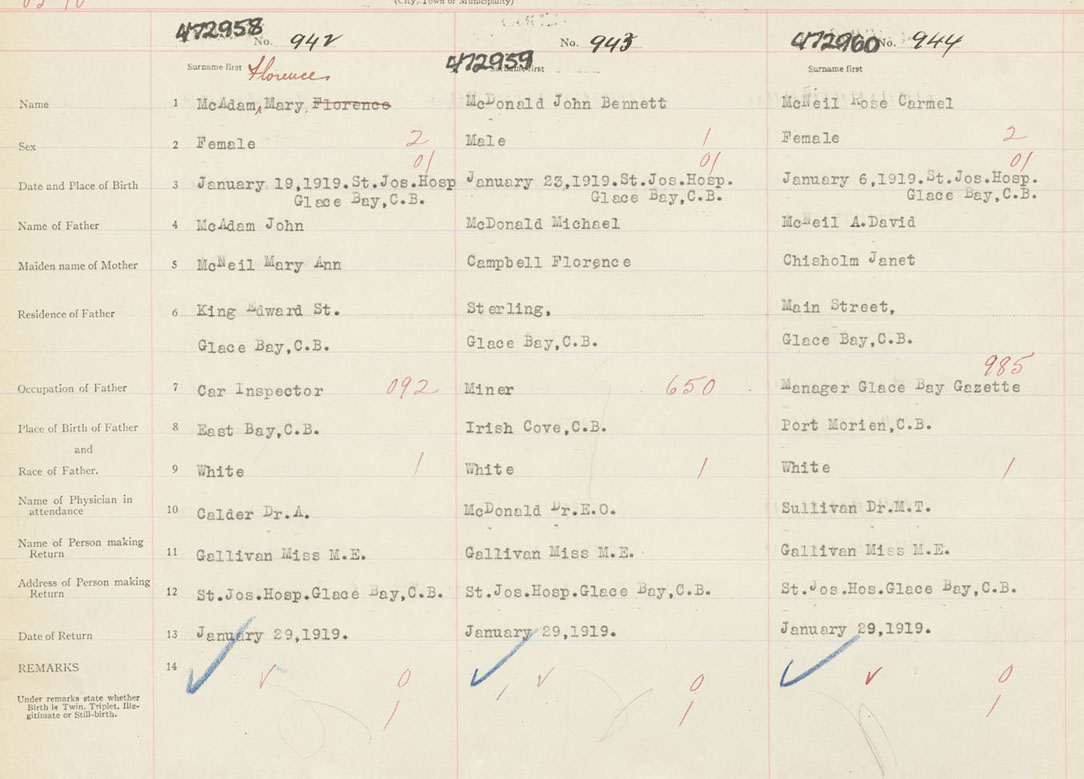 (City, Town or Municipality)
472958 No. 942 472959 No. 943 472960 No. 944
Surname first Florence Surname first Surname first
Name 1 McAdam, Mary, Florence McDonald John Bennett McNeil Rose Carmel
Sex 2 Female 2 Male 1 Female 2
01 01 01
Date and Place of Birth 3 January 19,1919.St.Jos.Hosp January 23,1919.St.Jos.Hosp. January 6,1919.St.Jos.Hosp.
Glace Bay,C.B. Glace Bay,C.B. Glace Bay,C.B.
Name of Father 4 McAdam John McDonald Michael McNeil A.David
Maiden name of Mother 5 McNeil Mary Ann Campbell Florence Chisholm Janet
Residence of Father 6 King Edward St. Sterling, Main Street,
Glace Bay,C.B. Glace Bay,C.B. Glace Bay,C.B.
985
Occupation of Father 7 Car Inspector 092 Miner 650 Manager Glace Bay Gazette
Place of Birth of Father 8 East Bay,C.B. Irish Cove,C.B. Port Morien,C.B.
and
Race of Father. 9 White 1 White 1 White 1
Name of Physician in
attendance 10 Calder Dr.A. McDonald Dr.E.O. Sullivan Dr.M.T.
Name of Person making
Return 11 Gallivan Miss M.E. Gallivan Miss M.E. Gallivan Miss M.E.
Address of Person making
Return 12 St.Jos.Hosp.Glace Bay,C.B. St.Jos.Hosp.Glace Bay,C.B. St.Jos.Hos.Glace Bay,C.B.
Date of Return 13 January 29,1919. January 29,1919. January 29,1919.
REMARKS 14
0 0 0
Under remarks state whether
Birth is Twin, Triplet, Ille-
gitimate or Still-birth.
1 1 1